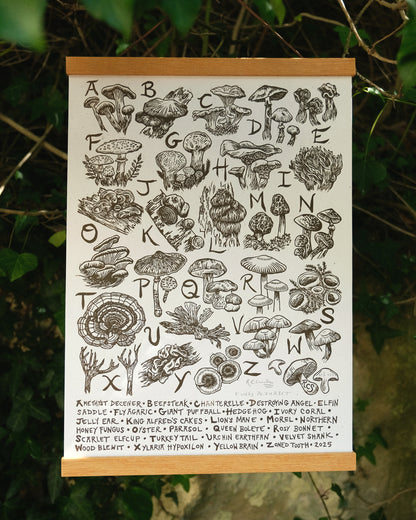 A B C D E
F G H I
J K L M N
O P Q R S
T U V W
X Y Z
AMETHYST DECEIVER • BEEFSTEAK • CHANTERELLE • DESTROYING ANGEL • ELFIN
SADDLE • FLY AGARIC • GIANT PUFFBALL • HEDGEHOG • IVORY CORAL •
JELLY EAR • KING ALFRED'S CAKES • LION'S MANE • MOREL • NORTHERN
HONEY FUNGUS • OYSTER • PARASOL • QUEEN BOLETE • ROSY BONNET •
SCARLET ELFCUP • TURKEY TAIL • URCHIN EARTHFAN • VELVET SHANK •
WOOD BLEWIT • XYLARIA HYPOXILON • YELLOW BRAIN • ZONED TOOTH • 2025